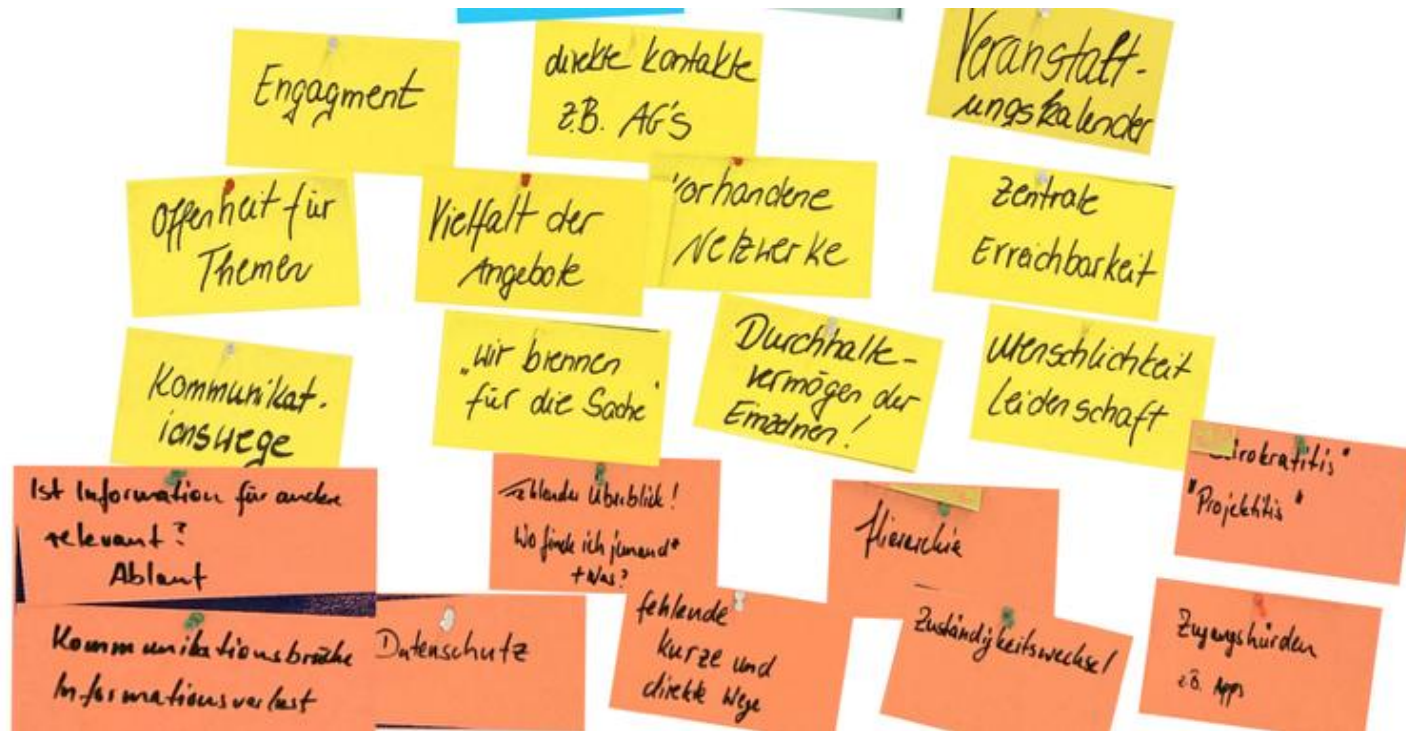 Engagment
direkte Kontakte
z.B. AG'S
Veranstalt-
ungskalender
Offenheit für
Themen
Vielfalt der
Angebote
Vorhandene
Netzwerke
Zentrale
Erreichbarkeit
Kommunikat.
ionswege
"wir brennen
für die Sache"
Durchhalte-
vermögen der
Einzelnen!
Menschlichkeit
Leidenschaft
Ist Information für andere
relevant?
Ablauf
fehlender Überblick!
Wo finde ich jemand*
+ Was?
Hierarchie
"Projektitis"
Kommunikationsbrüche
Informationsverlust
Datenschutz
fehlende
kurze und
direkte Wege
Zuständigkeitswechsel
Zugangshürden
z.B. Apps